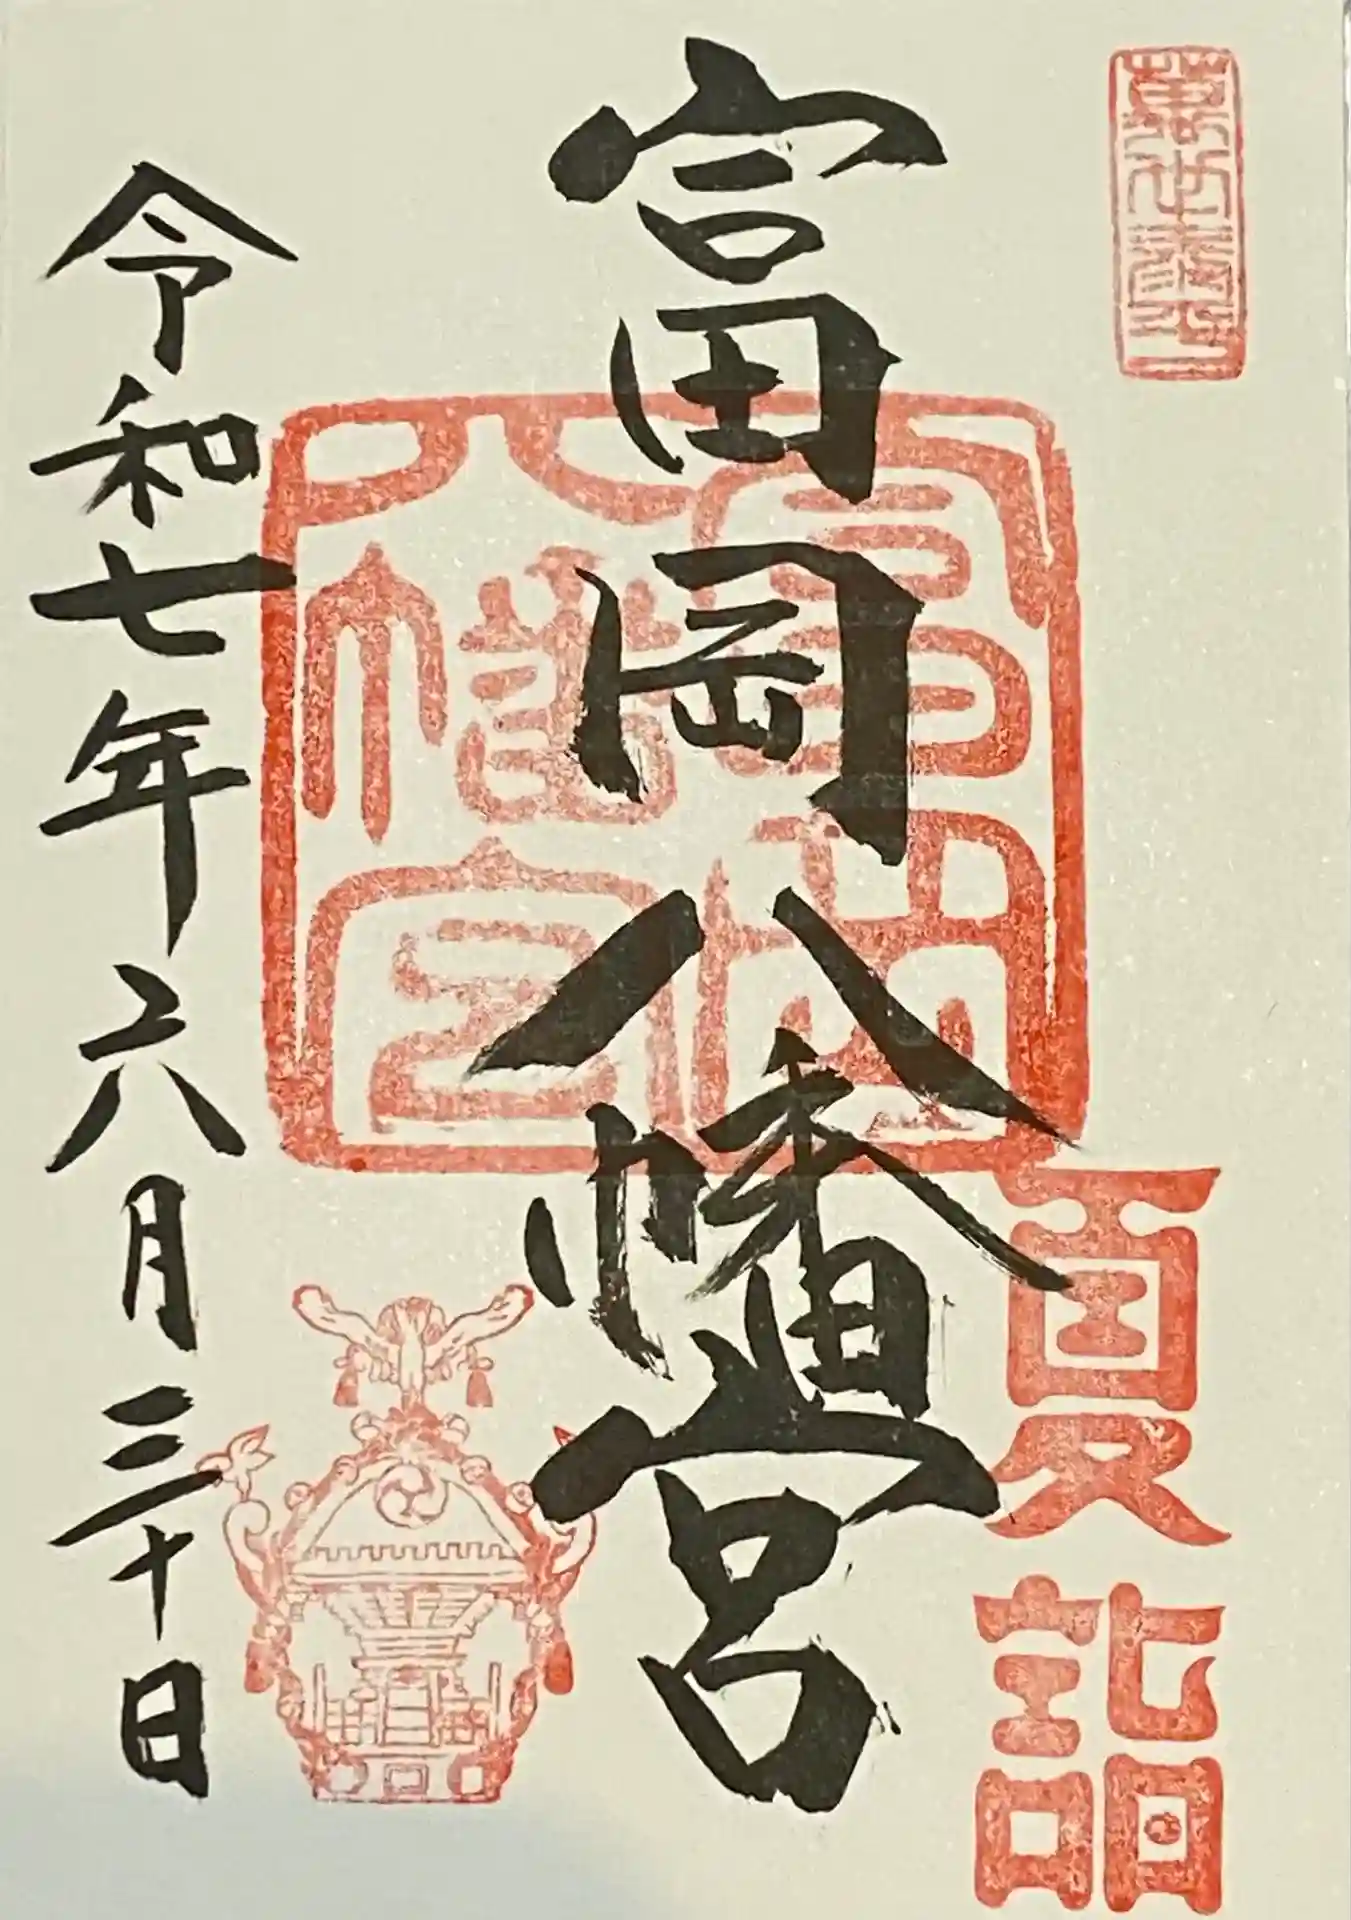 萬世泰平
富岡八幡宮
富岡八幡宮
夏詣
令和七年六月三十日